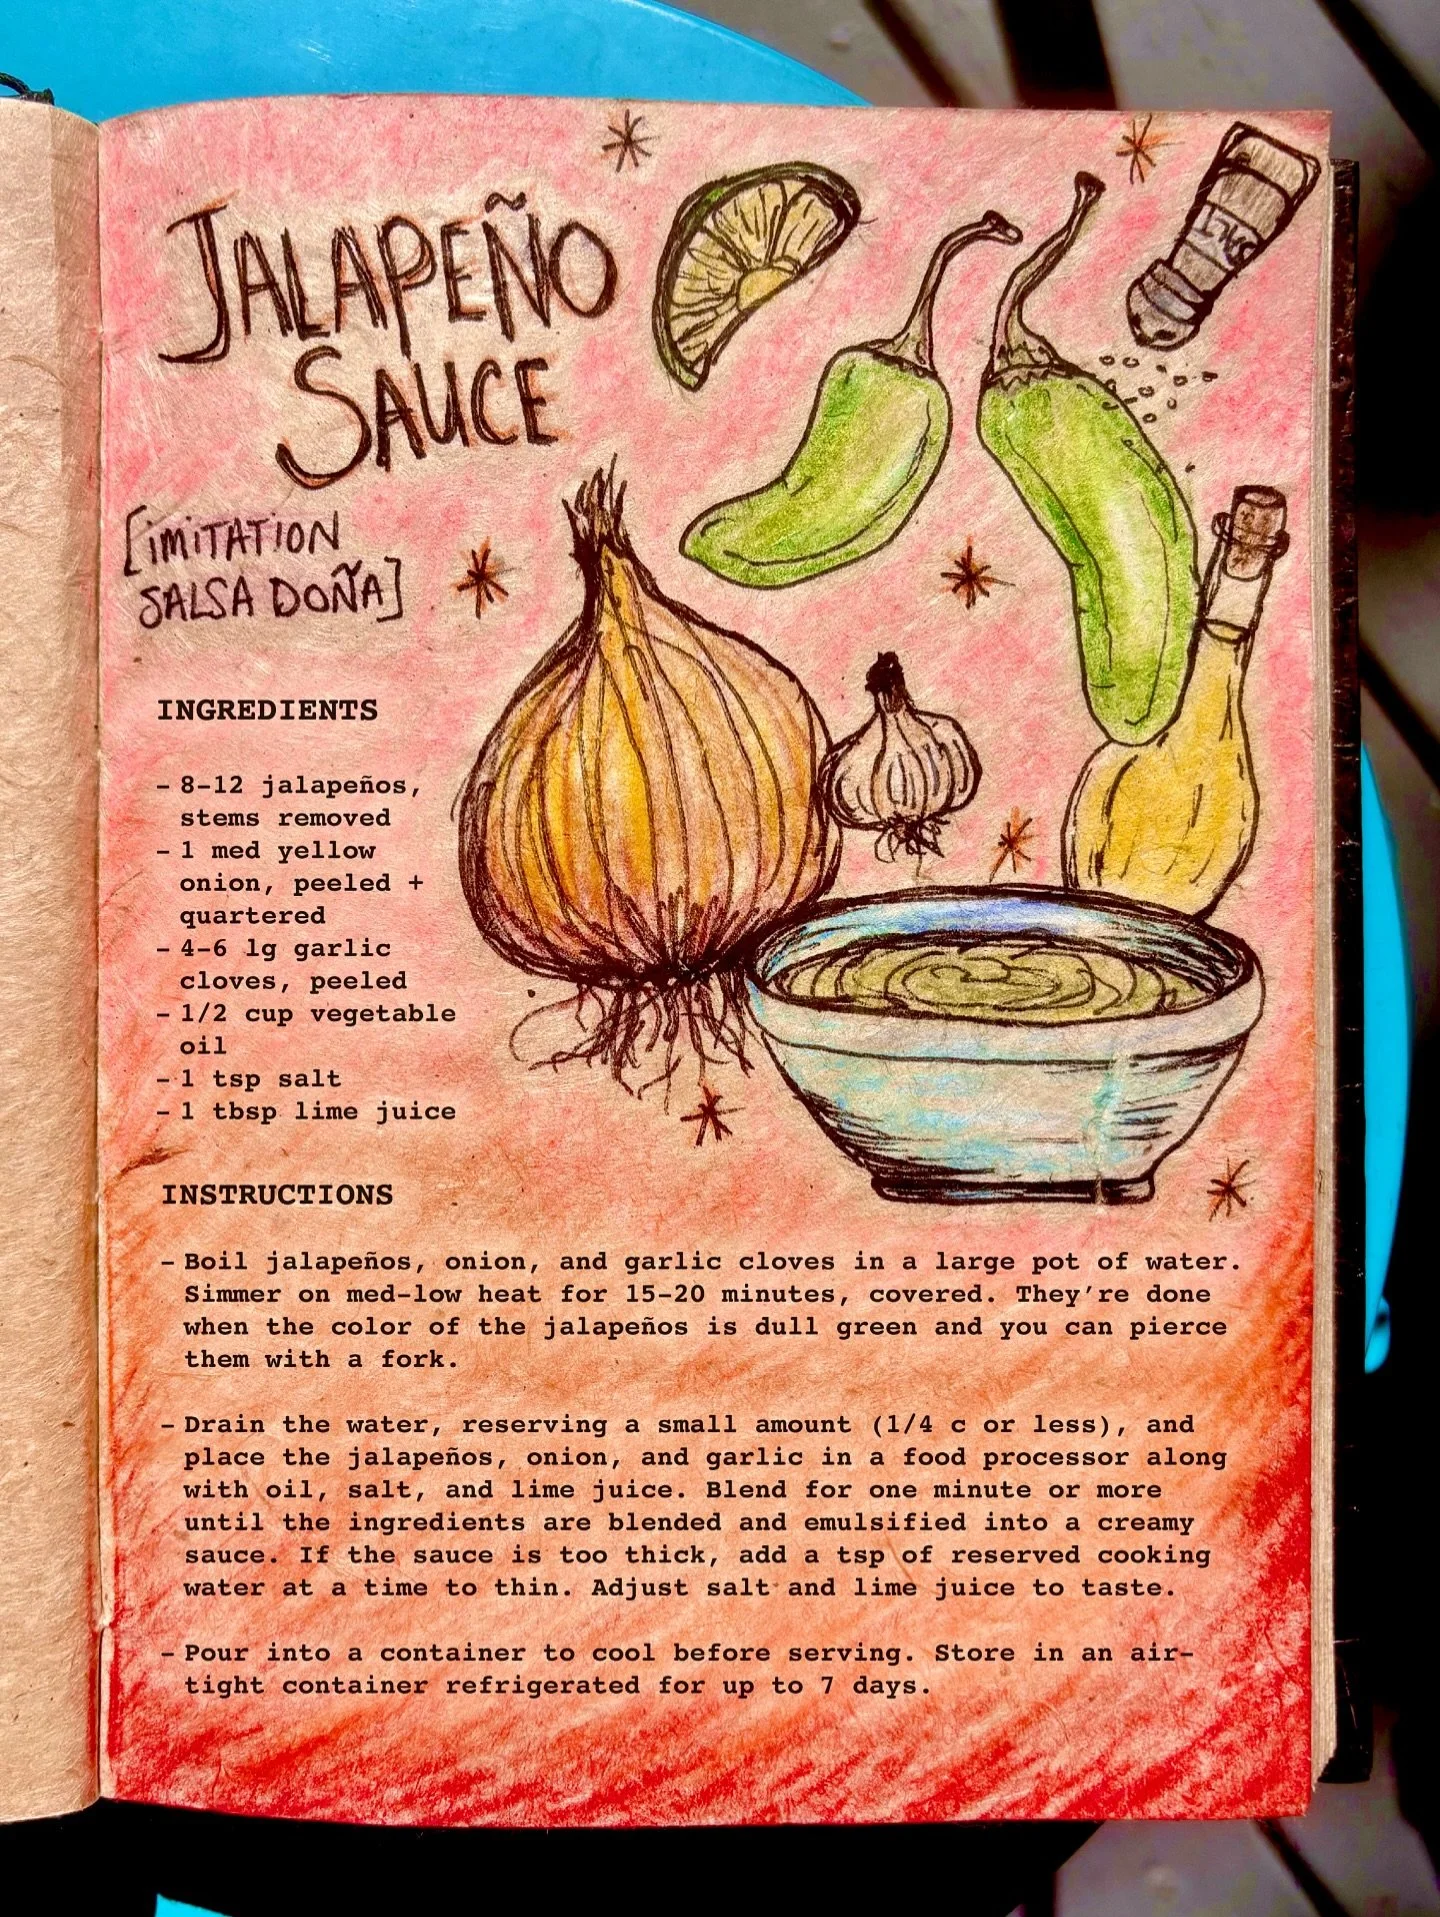 JALAPEÑO
SAUCE
[IMITATION
SALSA DOÑA]
SALT
INGREDIENTS
- 8-12 jalapeños,
stems removed
- 1 med yellow
onion, peeled +
quartered
- 4-6 lg garlic
cloves, peeled
- 1/2 cup vegetable
oil
- 1 tsp salt
- 1 tbsp lime juice
INSTRUCTIONS
- Boil jalapeños, onion, and garlic cloves in a large pot of water.
Simmer on med-low heat for 15-20 minutes, covered. They're done
when the color of the jalapeños is dull green and you can pierce
them with a fork.
- Drain the water, reserving a small amount (1/4 c or less), and
place the jalapeños, onion, and garlic in a food processor along
with oil, salt, and lime juice. Blend for one minute or more
until the ingredients are blended and emulsified into a creamy
sauce. If the sauce is too thick, add a tsp of reserved cooking
water at a time to thin. Adjust salt and lime juice to taste.
- Pour into a container to cool before serving. Store in an air-
tight container refrigerated for up to 7 days.